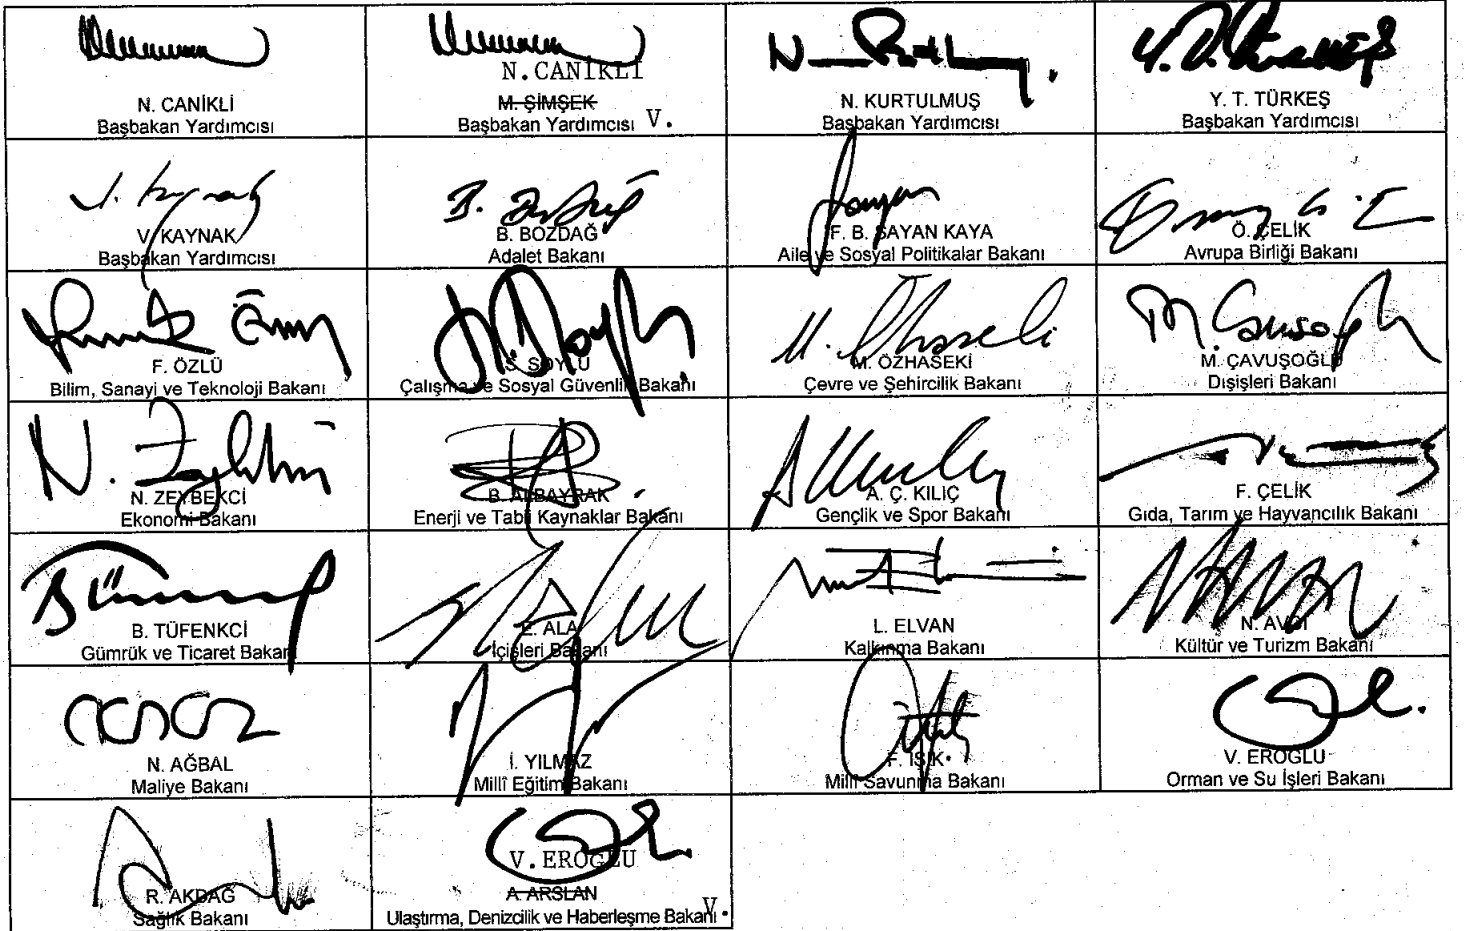 N. CANİKLİ
Başbakan Yardımcısı
N.CANİKLİ
M. ŞİMŞEK
Başbakan Yardımcısı V.
N. KURTULMUŞ
Başbakan Yardımcısı
Y. T. TÜRKEŞ
Başbakan Yardımcısı
V. KAYNAK
Başbakan Yardımcısı
B. BOZDAĞ
Adalet Bakanı
F. B. SAYAN KAYA
Aile ve Sosyal Politikalar Bakanı
Ö. ÇELİK
Avrupa Birliği Bakanı
F. ÖZLÜ
Bilim, Sanayi ve Teknoloji Bakanı
S. SOYLU
Çalışma ve Sosyal Güvenlik Bakanı
M. ÖZHASEKİ
Çevre ve Şehircilik Bakanı
M. ÇAVUŞOĞLU
Dışişleri Bakanı
N. ZEYBEKCİ
Ekonomi Bakanı
B. ALBAYRAK
Enerji ve Tabii Kaynaklar Bakanı
A. Ç. KILIÇ
Gençlik ve Spor Bakanı
F. ÇELİK
Gıda, Tarım ve Hayvancılık Bakanı
B. TÜFENKCİ
Gümrük ve Ticaret Bakanı
E. ALA
İçişleri Bakanı
L. ELVAN
Kalkınma Bakanı
N. AVCI
Kültür ve Turizm Bakanı
N. AĞBAL
Maliye Bakanı
İ. YILMAZ
Millî Eğitim Bakanı
F. IŞIK
Millî Savunma Bakanı
V. EROĞLU
Orman ve Su İşleri Bakanı
R. AKDAĞ
Sağlık Bakanı
V.EROĞLU
A ARSLAN
Ulaştırma, Denizcilik ve Haberleşme Bakanı V.